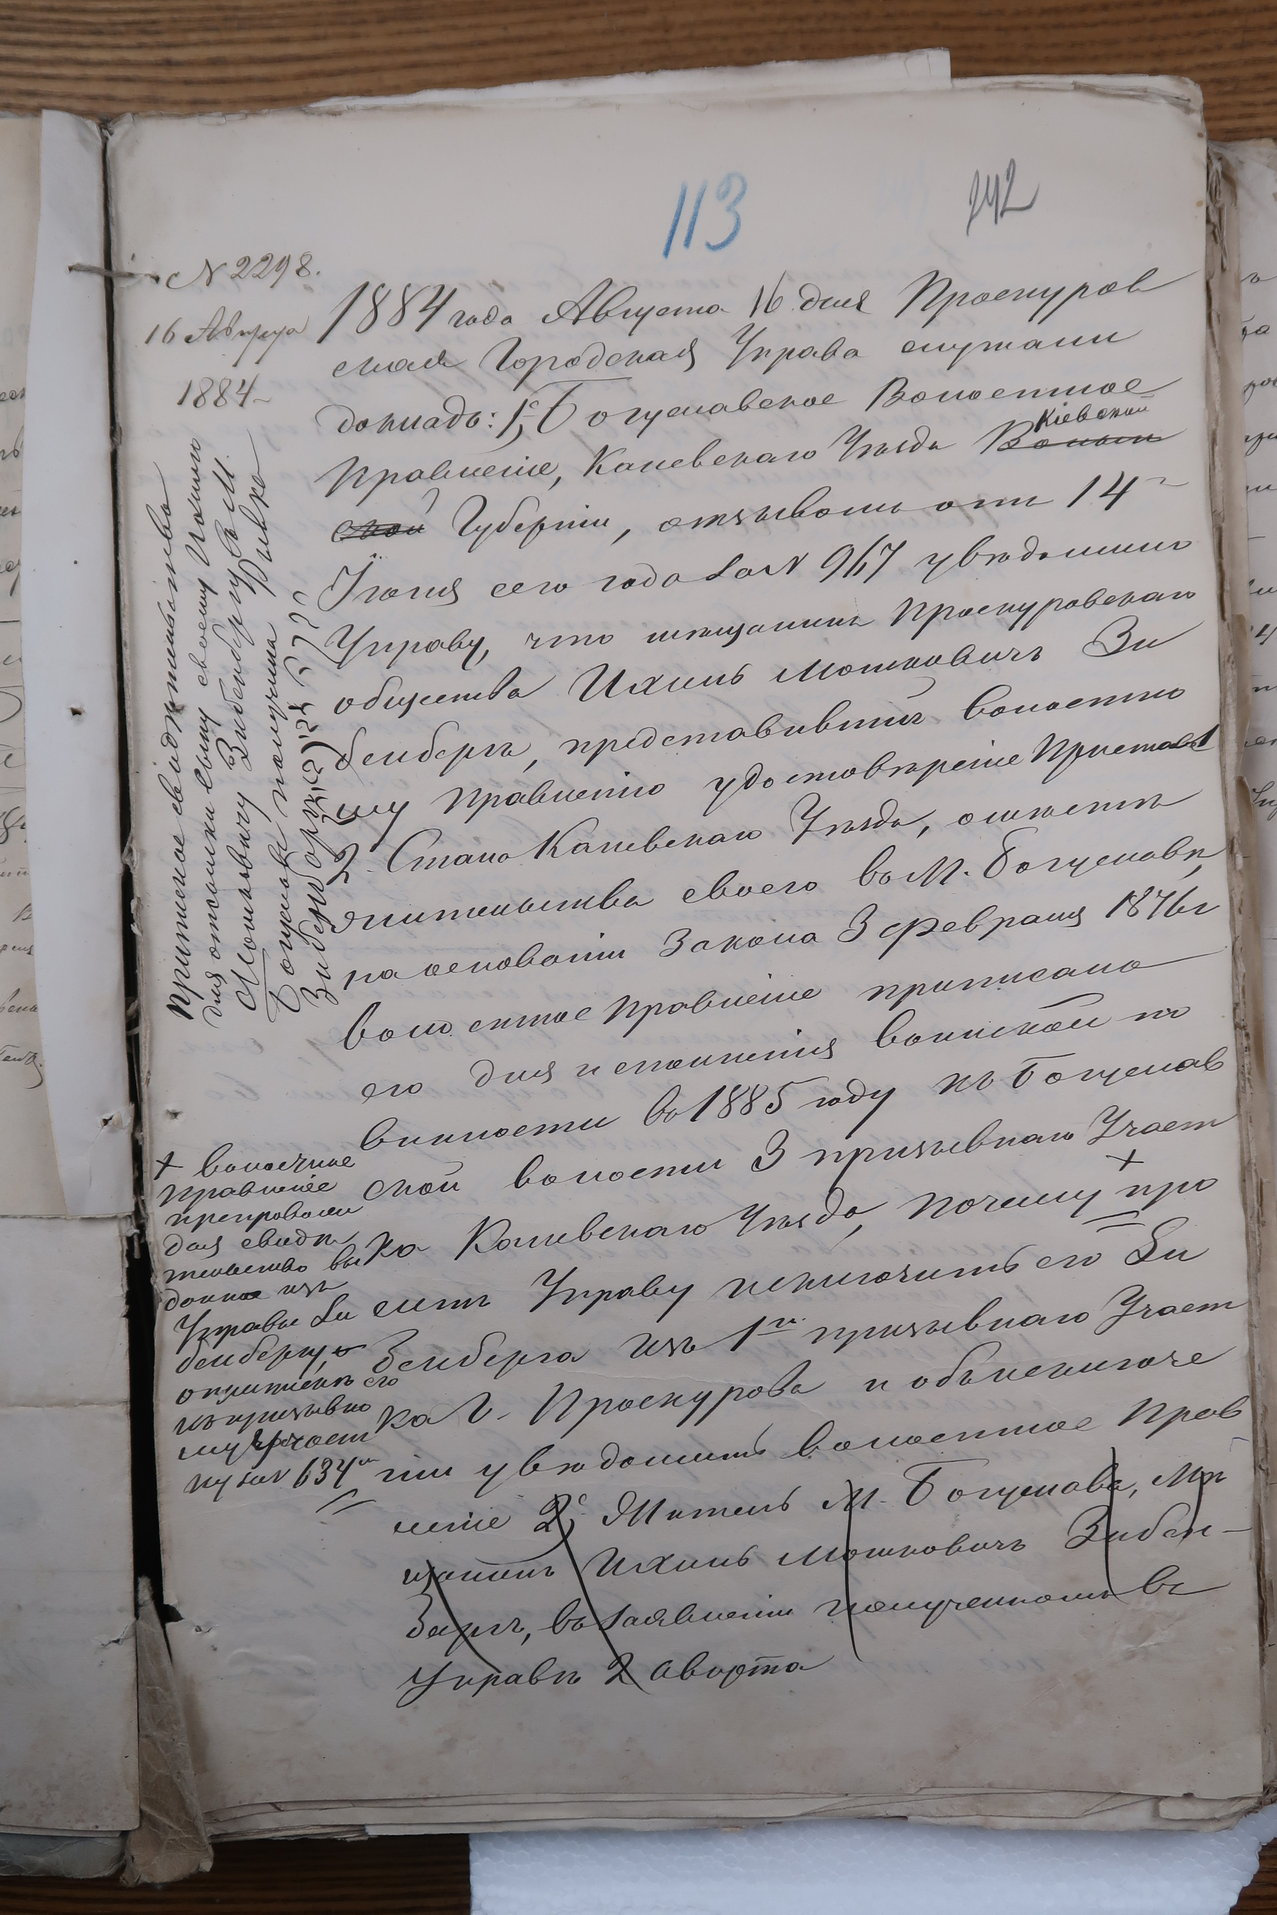 113
242
№ 2298.
16 Августа
1884
1884 года Августа 16 дня Проскуров
ская Городская Управа слушали
докладъ: 1е, Богуславское Волостное
Киевской
Правленіе, Каневскаго Уѣзда Волын
ской Губерніи, отзывомъ отъ 14
Іюня сего года за № 967 увѣдомило
Управу, что мѣщанинъ Проскуровскаго
общества Ихиль Мошковичъ Зи
бенбергъ, представившій волостно
му Правленію удостовѣреніе Пристава
2 Стана Каневскаго Уѣзда, о
жительства своего въ М. Богуславѣ,
на основаніи Закона 3 февраля 1876 г
волостное Правленіе приписано
его для исполненія воинской по
винности въ 1885 году къ Богуслав
ской волости 3 призывнаго Участ
ка Каневскаго Уѣзда, почему + про
ситъ Управу исключить его Зи
бенберга изъ 1го призывнаго Участ
ка Г. Проскурова и объ исключе
ніи увѣдомить волостное Прав
леніе 2е, Житель М. Богуслава, Мѣ
щанинъ Ихиль Мошковичъ Зибен-
бергъ, въ заявленіи полученномъ въ
Управѣ 2 августа
Приписное свидѣтельство
для отсылки сыну своему Ихилю
Мошковичу Зибенбергу въ М.
Богуславъ получила Рывка
Зибенбергъ
+ волостное
Правленіе
препрово
дая свидѣ
тельство вы
данное изъ
Управы Зи
бенбергу, о
припискѣ его
къ призывно
му участ
ку за № 634